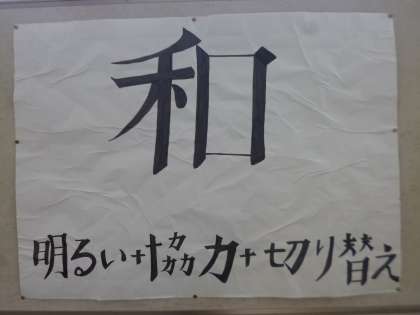 和
明るい+協力+切り替え